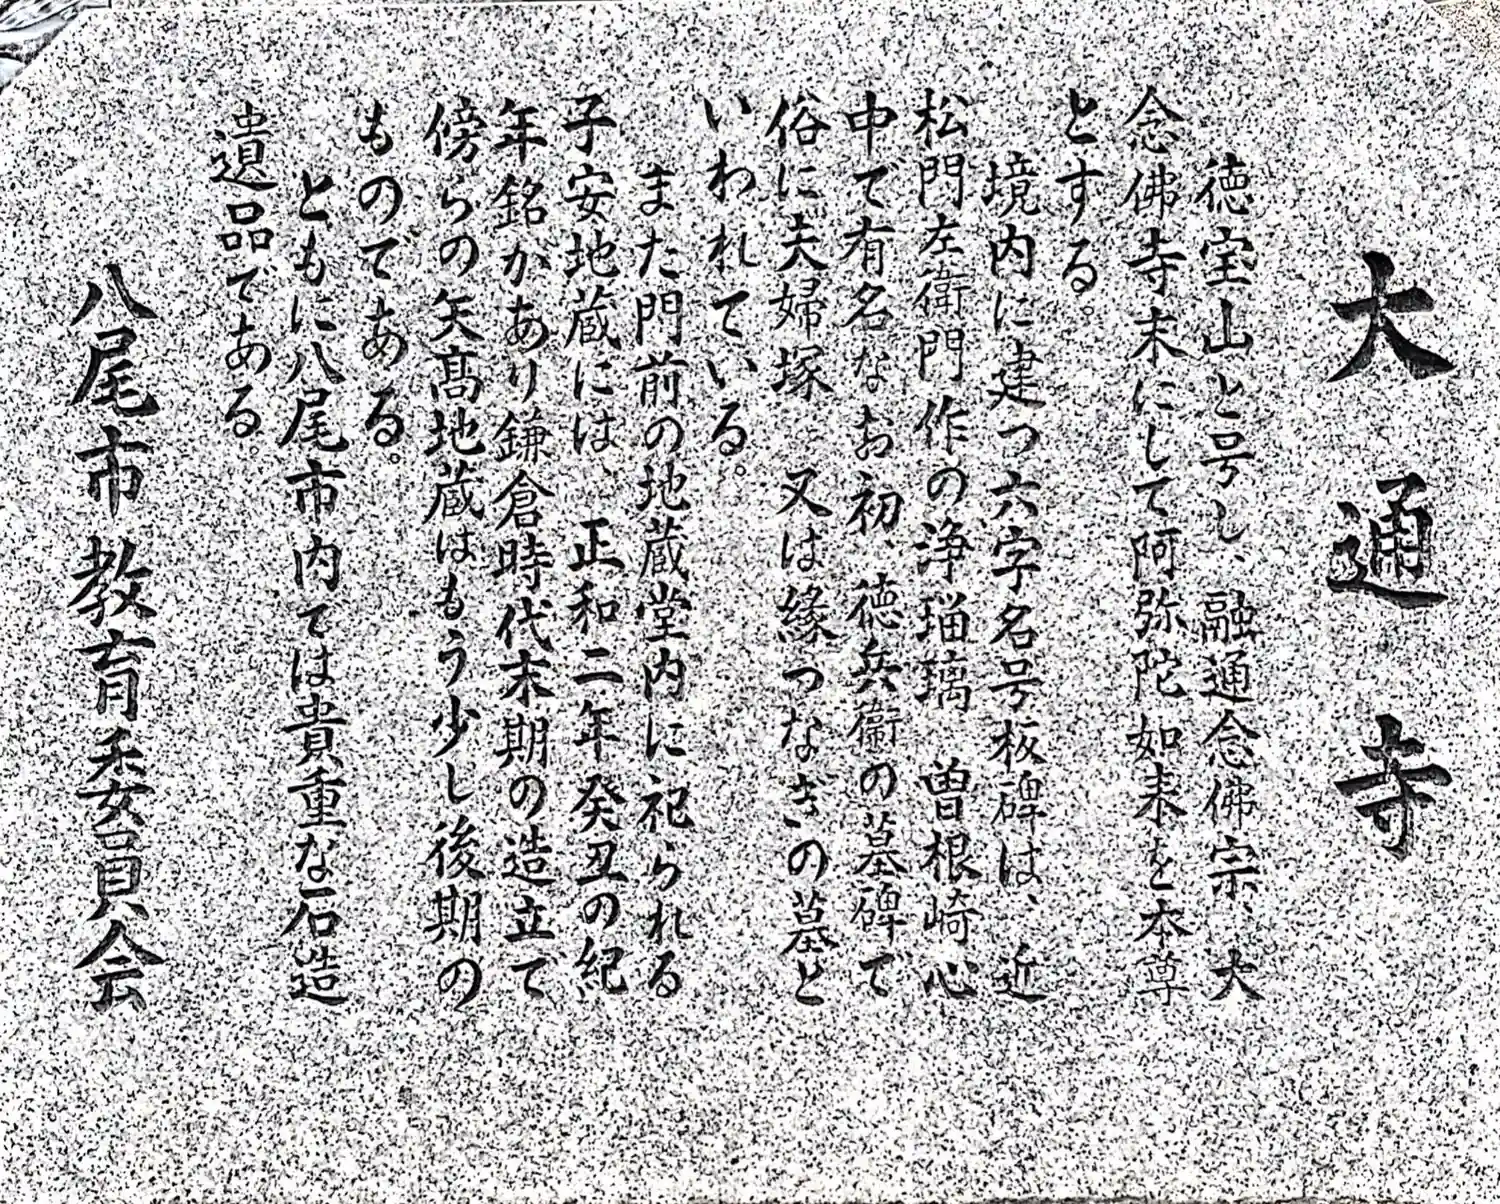 大通寺
徳宝山と号し、融通念佛宗、大
念佛寺末にして阿弥陀如来を本尊
とする。
境内に建つ六字名号板碑は、近
松門左衛門作の浄瑠璃 曽根崎心
中で有名なお初、徳兵衛の墓碑で
俗に夫婦塚 又は縁つなぎの墓と
いわれている。
また門前の地蔵堂内に祀られる
子安地蔵には、正和二年癸丑の紀
年銘があり鎌倉時代末期の造立で
傍らの矢髙地蔵はもう少し後期の
ものである。
ともに八尾市内では貴重な石造
遺品である。
八尾市教育委員会